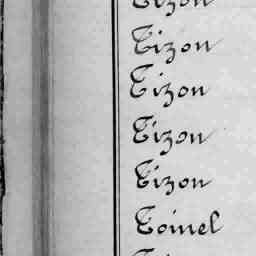 Tizon
Tizon
Tizon
Tizon
Tizon
Toinel